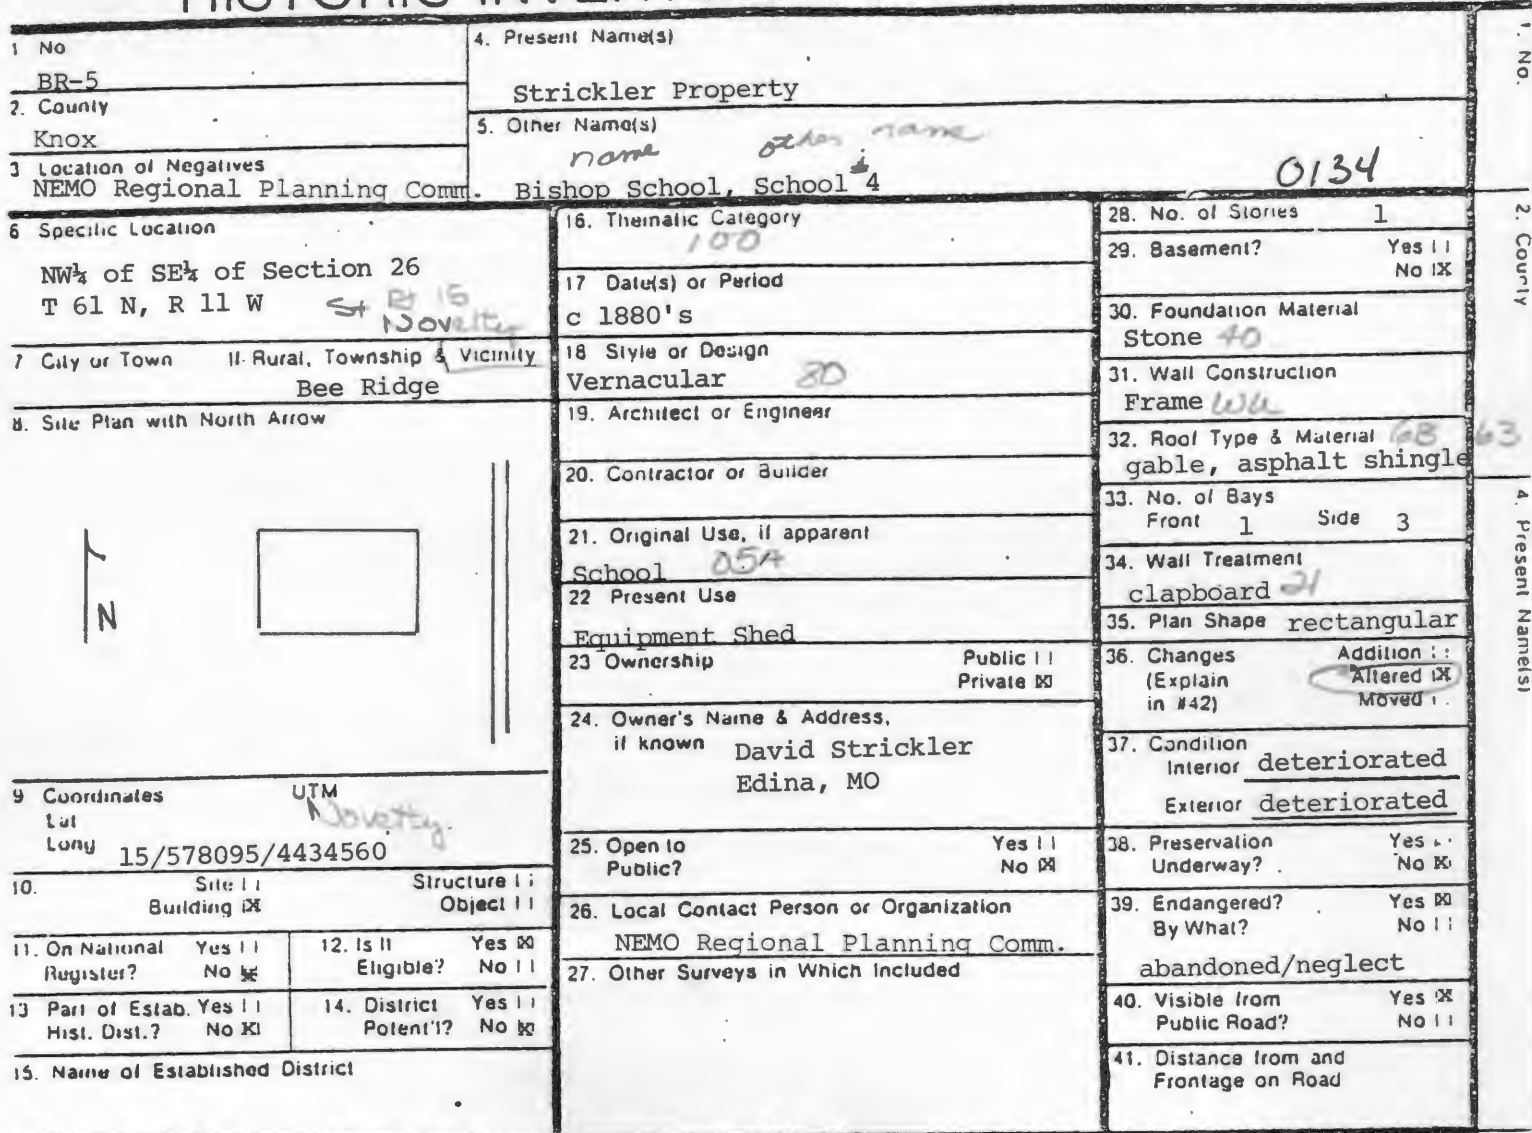 HISTORIC INVENT
1 No
BR-5
2. County
Knox
3 Location of Negatives
NEMO Regional Planning Comm.
4. Present Name(s)
Strickler Property
5. Other Name(s)
name other name
Bishop School, School #4
0134
6 Specific Location
NW¼ of SE¼ of Section 26
T 61 N, R 11 W
St Rt 15
Novelty
7 City or Town If Rural, Township & Vicinity
Bee Ridge
8. Site Plan with North Arrow
N
9 Coordinates UTM
Lat
Long
Novelty.
15/578095/4434560
10. Site [ ] Structure [ ]
Building [X] Object [ ]
11. On National Register? Yes [ ] No [X]
12. Is It Eligible? Yes [X] No [ ]
13 Part of Estab. Hist. Dist.? Yes [ ] No [X]
14. District Potent'l? Yes [ ] No [X]
15. Name of Established District
16. Thematic Category
100
17 Date(s) or Period
c 1880's
18 Style or Design
Vernacular 80
19. Architect or Engineer
20. Contractor or Builder
21. Original Use, if apparent
School 05A
22 Present Use
Equipment Shed
23 Ownership Public [ ]
Private [X]
24. Owner's Name & Address,
if known
David Strickler
Edina, MO
25. Open to Public? Yes [ ]
No [X]
26. Local Contact Person or Organization
NEMO Regional Planning Comm.
27. Other Surveys in Which Included
28. No. of Stories 1
29. Basement? Yes [ ]
No [X]
30. Foundation Material
Stone 40
31. Wall Construction
Frame
32. Roof Type & Material 63
gable, asphalt shingle
33. No. of Bays
Front 1 Side 3
34. Wall Treatment
clapboard 21
35. Plan Shape rectangular
36. Changes Addition [ ]
(Explain Altered [X]
in #42) Moved [ ]
37. Condition
Interior deteriorated
Exterior deteriorated
38. Preservation Yes [ ]
Underway? No [X]
39. Endangered? Yes [X]
By What? No [ ]
abandoned/neglect
40. Visible from Yes [X]
Public Road? No [ ]
41. Distance from and
Frontage on Road
1. No.
2. County
4. Present Name(s)